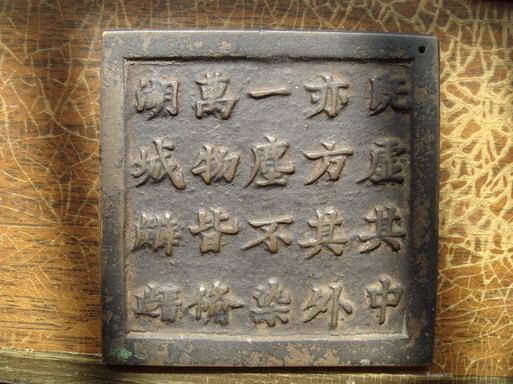 既虛其中
亦方其外
一塵不染
萬物皆備
湖城